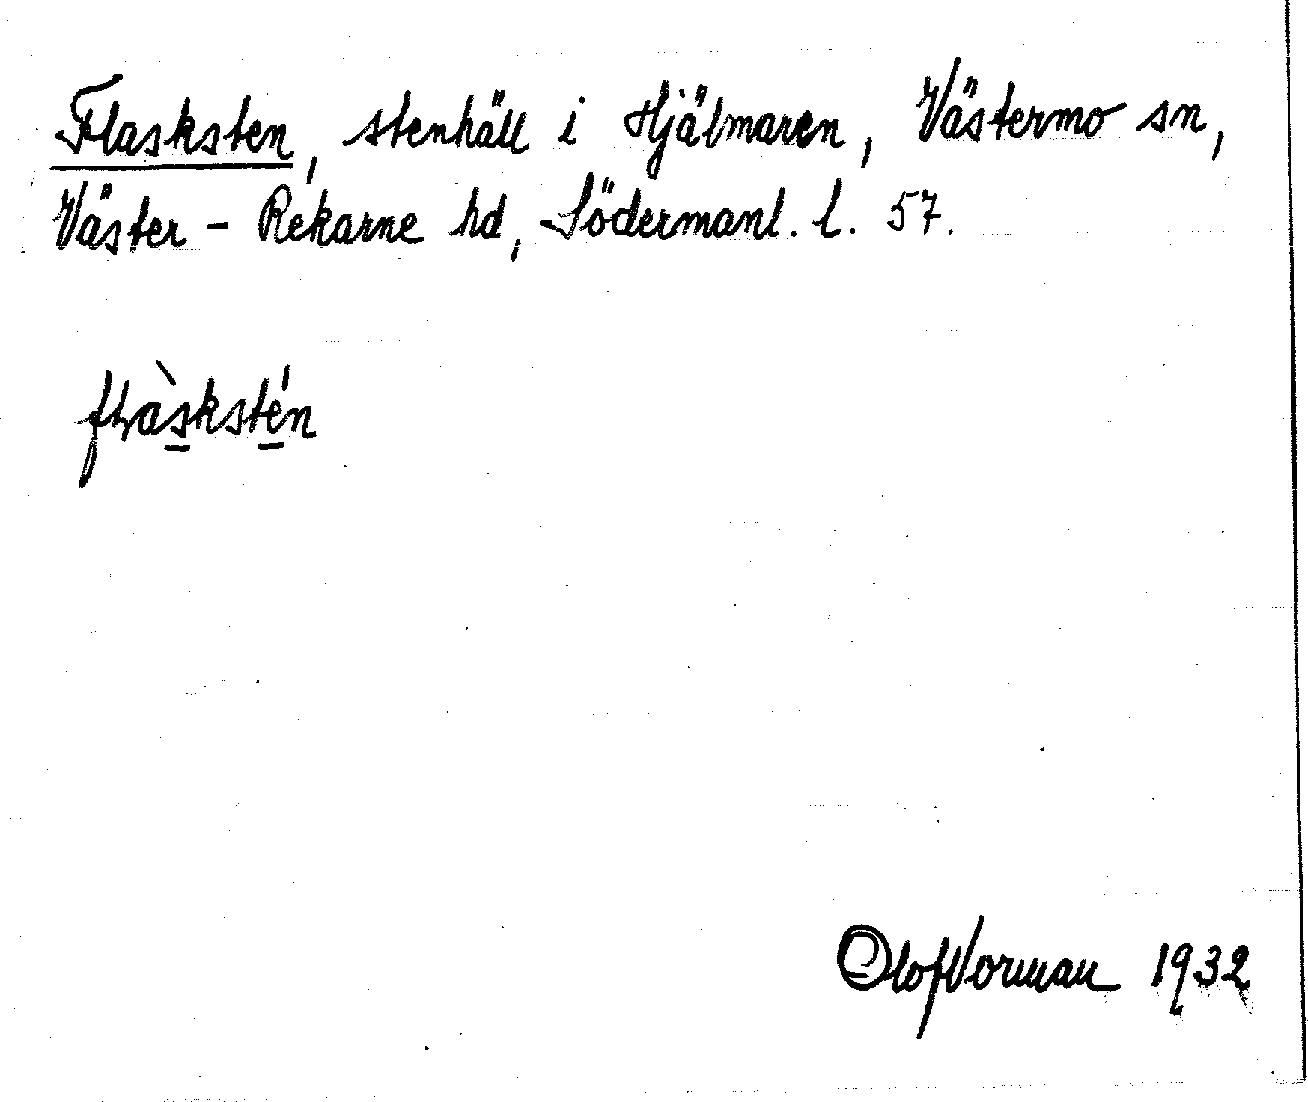 Flasksten, stenhäll i Hjälmaren, Västermo sn,
Väster-Rekarne hd, Södermanl. l. 57.
flàsksté̱n
Olof Norman 1932